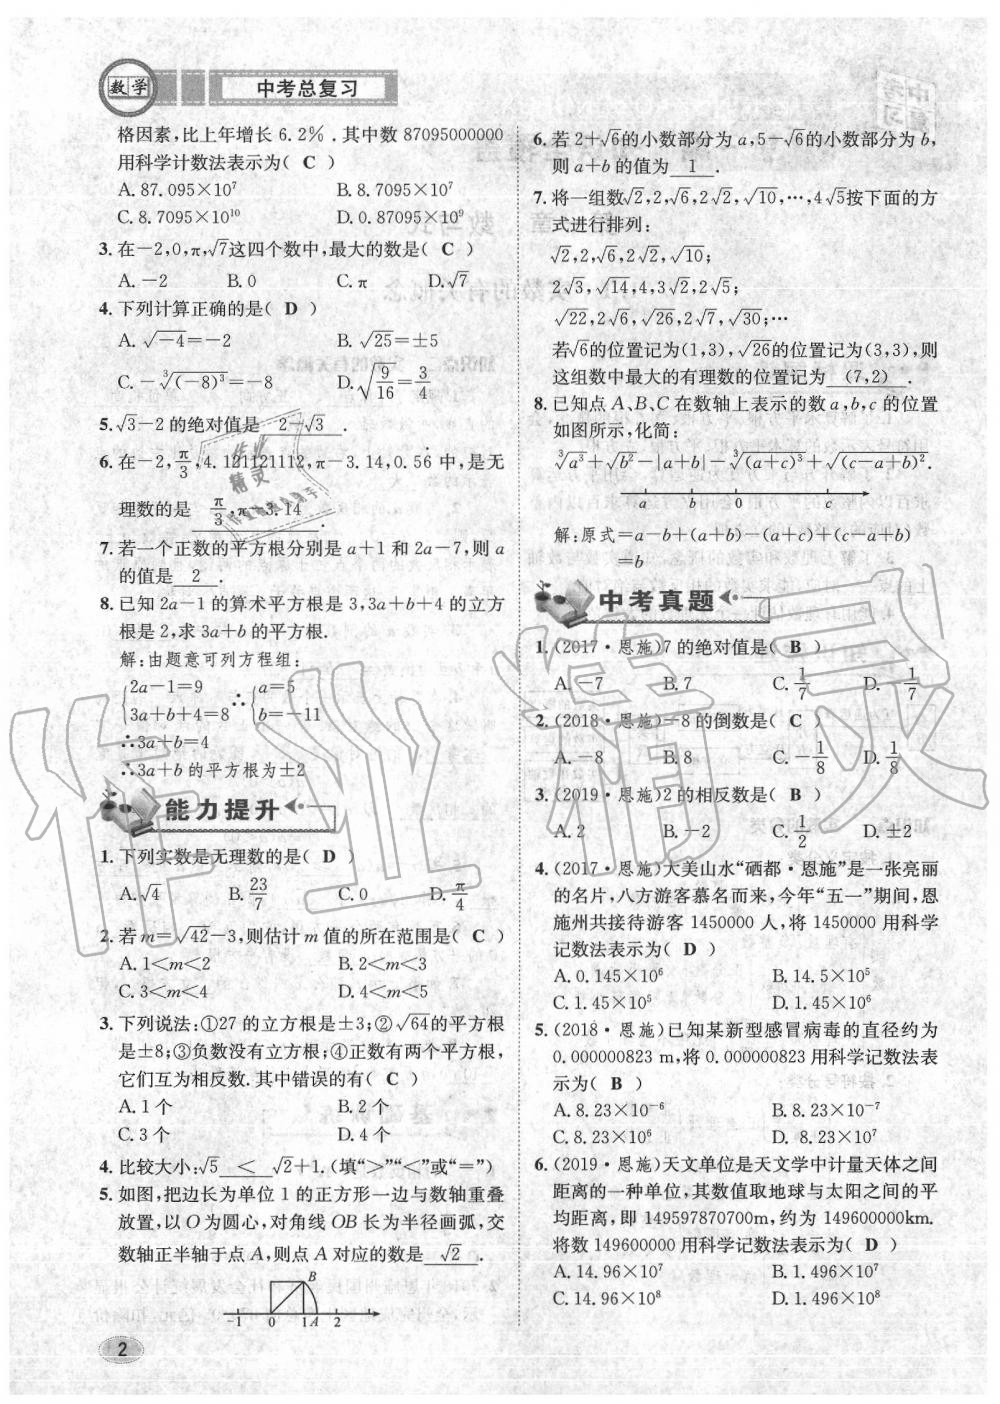 数学
中考总复习
格因素,比上年增长 6.2%.其中数 87095000000
用科学计数法表示为( C )
A. 87.095×10⁷ B. 8.7095×10⁷
C. 8.7095×10¹⁰ D. 0.87095×10⁹
3. 在-2,0,π,√7这四个数中,最大的数是( C )
A. -2 B. 0 C. π D. √7
4. 下列计算正确的是( D )
A. √-4=-2 B. √25=±5
C. -³√(-8)³=-8 D. √(9/16)=3/4
5. √3-2 的绝对值是 2-√3 .
6. 在-2,π/3,4.121121112,π-3.14,0.56̇ 中,是无
理数的是 π/3,π-3.14 .
7. 若一个正数的平方根分别是 a+1 和 2a-7,则 a
的值是 2 .
8. 已知 2a-1 的算术平方根是 3,3a+b+4 的立方
根是 2,求 3a+b 的平方根.
解:由题意可列方程组:
{2a-1=9 ∴{a=5
{3a+b+4=8 {b=-11
∴3a+b=4
∴3a+b 的平方根为±2
能力提升
1. 下列实数是无理数的是( D )
A. √4 B. 23/7 C. 0 D. π/4
2. 若 m=√42-3,则估计 m 值的所在范围是( C )
A. 1<m<2 B. 2<m<3
C. 3<m<4 D. 4<m<5
3. 下列说法:①27 的立方根是±3;②√64的平方根
是±8;③负数没有立方根;④正数有两个平方根,
它们互为相反数.其中错误的有( C )
A. 1 个 B. 2 个
C. 3 个 D. 4 个
4. 比较大小:√5 < √2+1.(填“>”“<”或“=”)
5. 如图,把边长为单位 1 的正方形一边与数轴重叠
放置,以 O 为圆心,对角线 OB 长为半径画弧,交
数轴正半轴于点 A,则点 A 对应的数是 √2 .
B
-1 0 1 A 2
2
6. 若 2+√6的小数部分为 a,5-√6的小数部分为 b,
则 a+b 的值为 1 .
7. 将一组数√2,2,√6,2√2,√10,…,4√5按下面的方
式进行排列:
√2,2,√6,2√2,√10;
2√3,√14,4,3√2,2√5;
√22,2√6,√26,2√7,√30;…
若√6的位置记为(1,3),√26的位置记为(3,3),则
这组数中最大的有理数的位置记为 (7,2) .
8. 已知点 A、B、C 在数轴上表示的数 a,b,c 的位置
如图所示,化简:
³√a³+√b²-|a+b|-³√(a+c)³+√(c-a+b)².
a b 0 c
解:原式=a-b+(a+b)-(a+c)+(c-a+b)
=b
中考真题
1. (2017·恩施)7 的绝对值是( B )
A. -7 B. 7 C. 1/7 D. -1/7
2. (2018·恩施)-8 的倒数是( C )
A. -8 B. 8 C. -1/8 D. 1/8
3. (2019·恩施)2 的相反数是( B )
A. 2 B. -2 C. 1/2 D. ±2
4. (2017·恩施)大美山水“硒都·恩施”是一张亮丽
的名片,八方游客慕名而来,今年“五一”期间,恩
施州共接待游客 1450000 人,将 1450000 用科学
记数法表示为( D )
A. 0.145×10⁶ B. 14.5×10⁵
C. 1.45×10⁵ D. 1.45×10⁶
5. (2018·恩施)已知某新型感冒病毒的直径约为
0.000000823 m,将 0.000000823 用科学记数法表
示为( B )
A. 8.23×10⁻⁶ B. 8.23×10⁻⁷
C. 8.23×10⁶ D. 8.23×10⁷
6. (2019·恩施)天文单位是天文学中计量天体之间
距离的一种单位,其数值取地球与太阳之间的平
均距离,即 149597870700m,约为 149600000km.
将数 149600000 用科学记数法表示为( D )
A. 14.96×10⁷ B. 1.496×10⁷
C. 14.96×10⁸ D. 1.496×10⁸
作业精灵